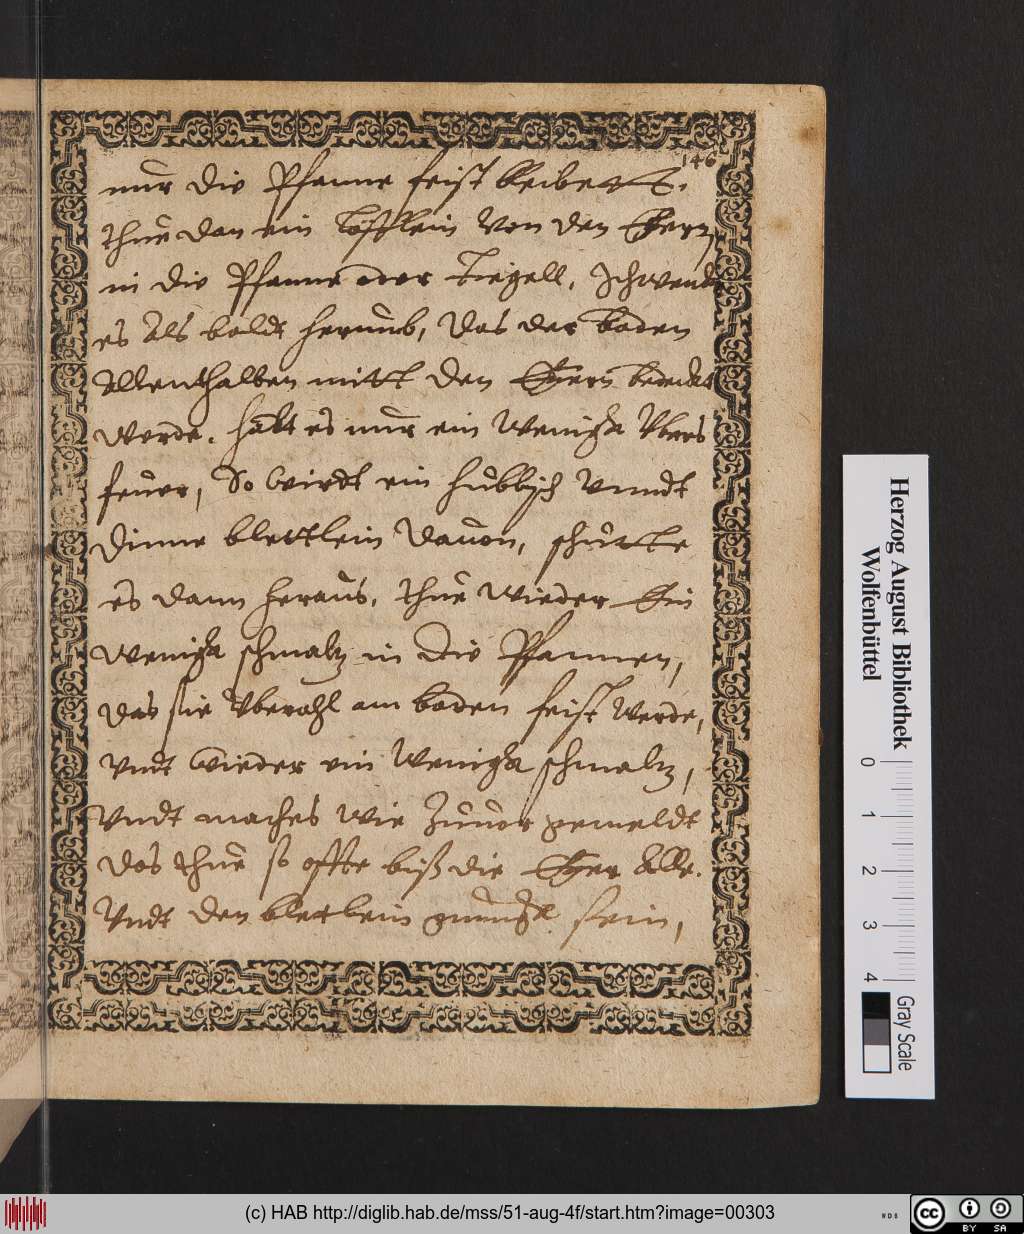 146
nur die Pfanne feist bleibett.
thue dan ein Löfflein Von den Eÿern
in die Pfanne oder Tiegell, schwenck
es Als baldt herumb, das der boden
Allenthalben mitt den Eÿern bedeckt
werde. halt es nur ein Wenigk Vbers
feuer, So wirdt ein hubbsch Vnndt
dinne blettlein dauon, schütte
es dann heraus, thue wieder Ein
wenigk schmaltz in die Pfannen,
das sie Vberahl am boden feist Werde,
Vndt wieder ein Wenigk schmaltz,
Vndt maches wie Zuuor gemeldt
das thue so offte biß die Eÿer Alle.
Vndt den bletlein gnungk sein,
Herzog August Bibliothek
Wolfenbüttel
0 1 2 3 4
Gray Scale
(c) HAB http://diglib.hab.de/mss/51-aug-4f/start.htm?image=00303
WDB
cc BY SA